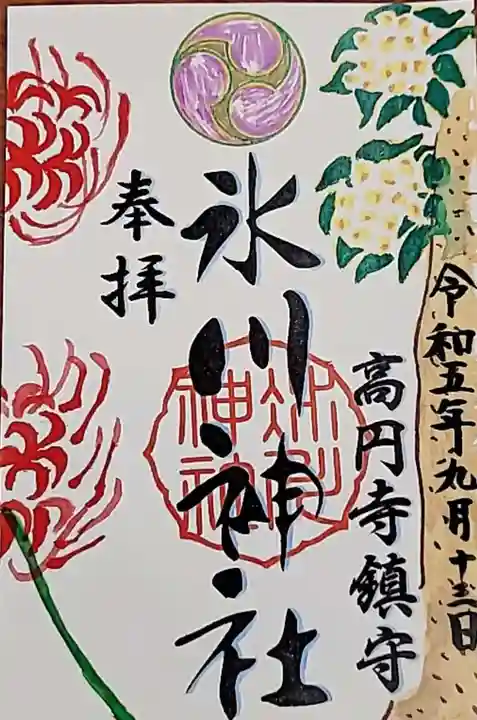 令和五年九月十三日
高円寺鎮守
氷川神社
氷川神社
奉拝